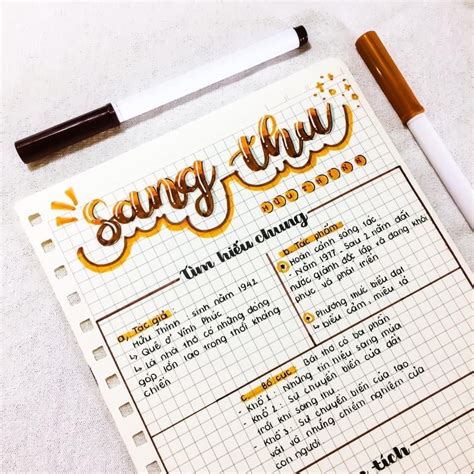 sang thu
HỮU THỈNH
Tìm hiểu chung
a, Tác giả
Hữu Thỉnh : sinh năm 1942
↳ Quê ở Vĩnh Phúc
↳ Là nhà thơ có những đóng
góp lớn lao trong thời kháng
chiến
b, Tác phẩm
Hoàn cảnh sáng tác
- Năm 1977 - sau 2 năm đất
nước giành độc lập và đang khôi
phục và phát triển
Phương thức biểu đạt
- biểu cảm, miêu tả
c, Bố cục : Bài thơ có ba phần
- Khổ 1 : Những tín hiệu sang mùa
- Khổ 2 : Sự chuyển biến của đất
trời khi sang thu
- Khổ 3 : Sự chuyển biến của tạo
vật và những chiêm nghiệm của
con người
tích